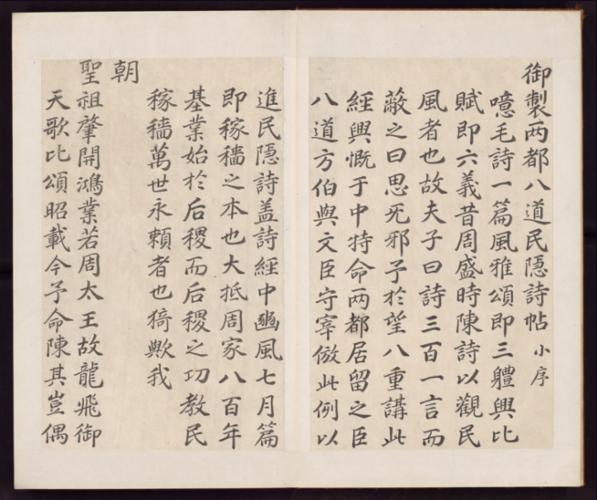 御製两都八道民隱詩帖 小序
噫毛詩一篇風雅頌即三軆興比
賦即六義昔周盛時陳詩以觀民
風者也故夫子曰詩三百一言而
蔽之曰思无邪予於望八重講此
經興慨于中特命两都居留之臣
八道方伯與文臣守宰倣此例以
進民隱詩盖詩經中豳風七月篇
即稼穡之本也大抵周家八百年
基業始於后稷而后稷之功教民
稼穡萬世永賴者也猗歟我
朝
聖祖肇開鴻業若周太王故龍飛御
天歌比頌昭載今予命陳其豈偶